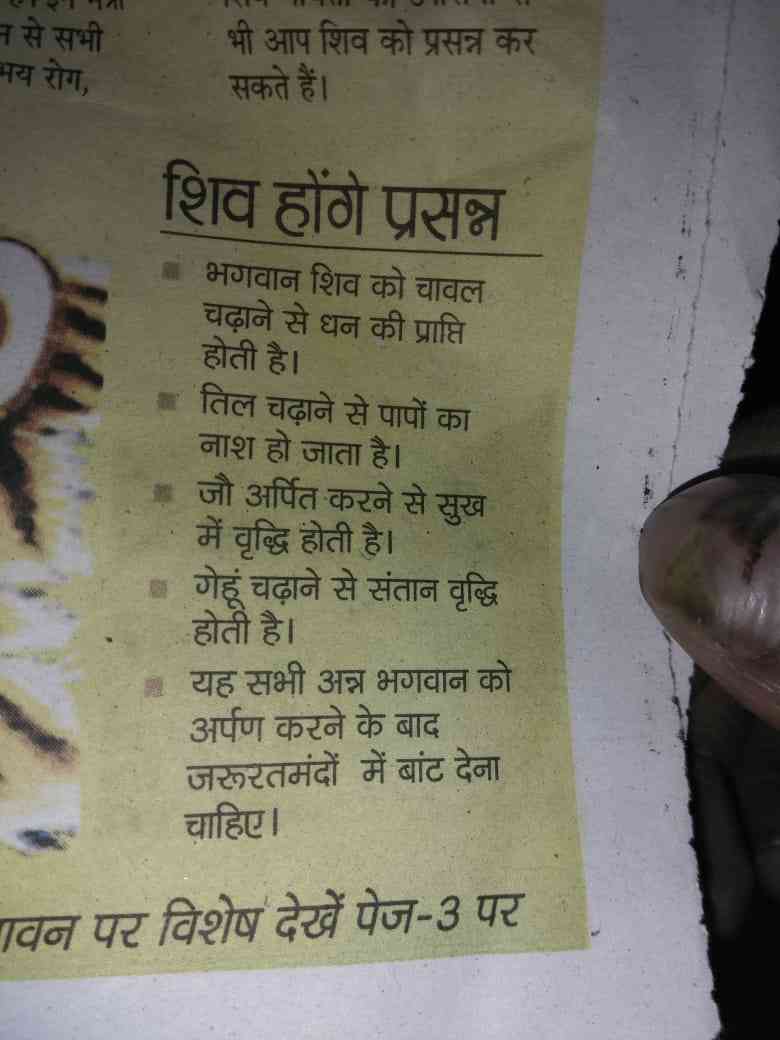 न से सभी
रोग,
भी आप शिव को प्रसन्न कर
सकते हैं।
शिव होंगे प्रसन्न
भगवान शिव को चावल
चढ़ाने से धन की प्राप्ति
होती है।
तिल चढ़ाने से पापों का
नाश हो जाता है।
जौ अर्पित करने से सुख
में वृद्धि होती है।
गेहूं चढ़ाने से संतान वृद्धि
होती है।
यह सभी अन्न भगवान को
अर्पण करने के बाद
जरूरतमंदों में बांट देना
चाहिए।
पर विशेष देखें पेज-3 पर